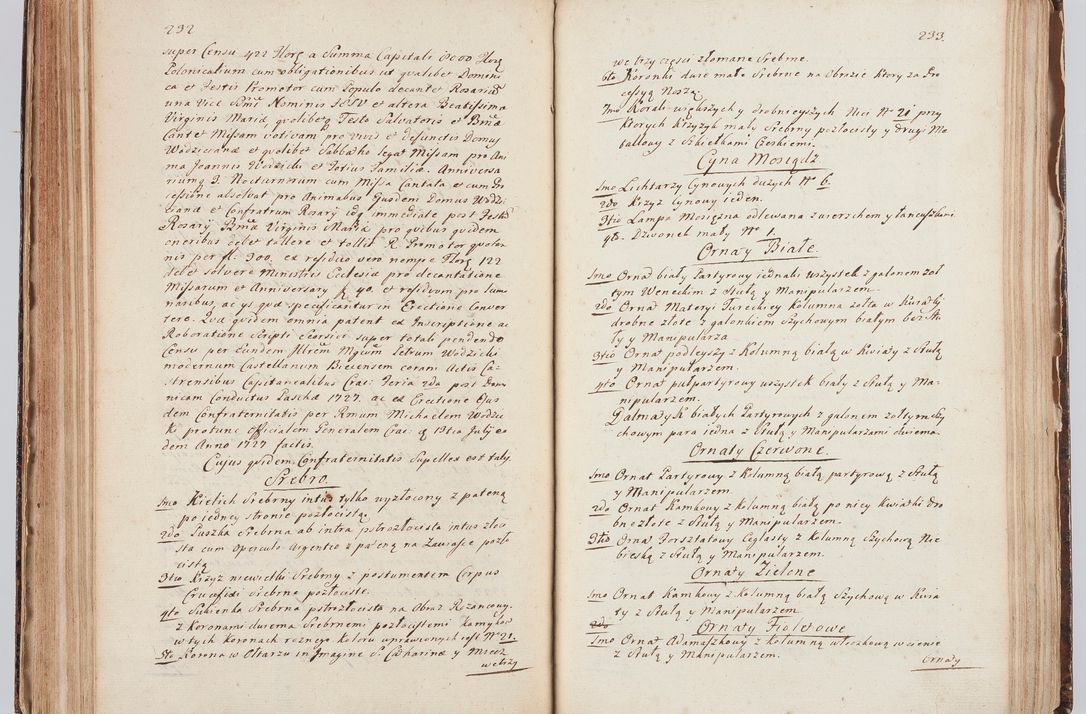 232
super Censu 422 Flor: a Summa Capitali 8000 Flor:
Polonicalium cum obligationibus ut qvolibet Domini
ca et Festis Promotor cum Populo decantet Rosariũ
una Vice SSmi Nominis JESU et altera Beatissima
Virginis Mariæ, qvolibet Festo Salvatoris et Bmæ
Cantet Missam votivam pro vivis et defunctis Domus
Wodzicianæ et qvolibet Sabbatho legat Missam pro Ani
ma Joannis Wodzicki et Totius Familiæ. Anniversa
rium 3. Nocturnorum cum Missa Cantata et cum Pro
cessione absolvat pro Animabus Ejusdem Domus Wodzi
cianæ et Confratrum Rosarij idq immediate post Festũ
Rosarij Bmæ Virginis Mariæ pro qvibus qvidem
oneribus debet tollere et tollit R. Promotor qvotan
nis per fl. 300. ex residuo vero nempe Flor: 122
debet solvere Ministris Ecclesiæ pro decantatione
Missarum et Anniversarij fl. 40. et residuum pro lumi
naribus, ac ijs qvæ specificantur in Erectione Conver
tere. Qvæ qvidem omnia patent ex Inscriptione ac
Roboratione Scripti Scorsivi super totali pendendo
Censu per eundem Illrem Mgcum Petrum Wodzicki
modernum Castellanum Biecensem coram Actis Ca=
strensibus Capitanealibus Crac: Feria 2da post Domi
nicam Conductus Paschæ 1727. ac ex Erectione Ejus
dem Confraternitatis per Rmum Michaelem Wodzic
ki protunc Officialem Generalem Crac: d 19na Julij eo
dem Anno 1727 factis.
Cujus qvidem Confraternitatis Supellex est talis
Srebro.
1mo Kielich Srebrny intus tylko wyzłocony z pateną
po iedney stronie pozłocistą.
2do Puszka Srebrna ab intra pstrozłocista intus złoci
sta cum Operculo Argenteo z pateną na Zawiasce pozło
cistą.
3tio Krzyż niewielki Srebrny z postumentem Corpus
Crucifixi Srebrne pozłociste.
4to Sukienka Srebrna pstrozłocista na Obraz Rożancowy.
z Koronami dwiema Srebrnemi pozłocistemi kamykow
w tych koronach rożnego koloru uprawionych iest No 21.
5to Korona w Ołtarzu in Imagine S. Catharinæ y Miecz
we trzy
233
we trzy części złomane Srebrne.
6to Koronki dwie małe Srebrne na Obrazie ktory za Pro
cessyą noszą.
7mo Korali większych y drobnieyszych Nici No 21 przy
ktorych Krzyżyk mały Srebrny pozłocisty y drugi Me
tallowy z Szkiełkami Czeskiemi.
Cyna Mosiądz
1mo Lichtarzy Cynowych dużych No 6.
2do Krzyż Cynowy ieden.
3tio Lampa Mosiężna odlewana z wierzchem y łancuszkami
4to Dzwonek mały No 1.
Ornaty Białe.
1mo Ornat biały Partyrowy iednaki wszystek z galonem żoł
tym Weneckim z Stułą y Manipularzem.
2do Ornat Materyi Tureckiey kolumna żołta w Kwiatki
drobne złote z galonkiem Szychowym białym bez Stu
ły y Manipularza
3tio Ornat podleyszy z Kolumną białą w Kwiaty z Stułą
y Manipularzem.
4to Ornat pułpartyrowy wszystek biały z Stułą y Ma=
nipularzem.
Dalmatyk białych Partyrowych z galonem żołtym Szy
chowym para iedna z Stułą y Manipularzami dwiema.
Ornaty Czerwone.
1mo Ornat Partyrowy z Kolumną białą partyrową z Stułą
y Manipularzem.
2do Ornat Kamkowy z kolumną białą po niey kwiatki dro
bne złote z Stułą y Manipularzem.
3tio Ornat Forsztatowy Ceglasty z kolumną Szychową Nie
bieską z Stułą y Manipularzem.
Ornaty Zielone
1mo Ornat Kamkowy z kolumną białą Szychową w Kwia
ty z Stułą y Manipularzem
2do
Ornaty Fiolkowe
1mo Ornat Adamaszkowy z kolumną włoczkową w cienie
z Stułą y Manipularzem.
Ornaty